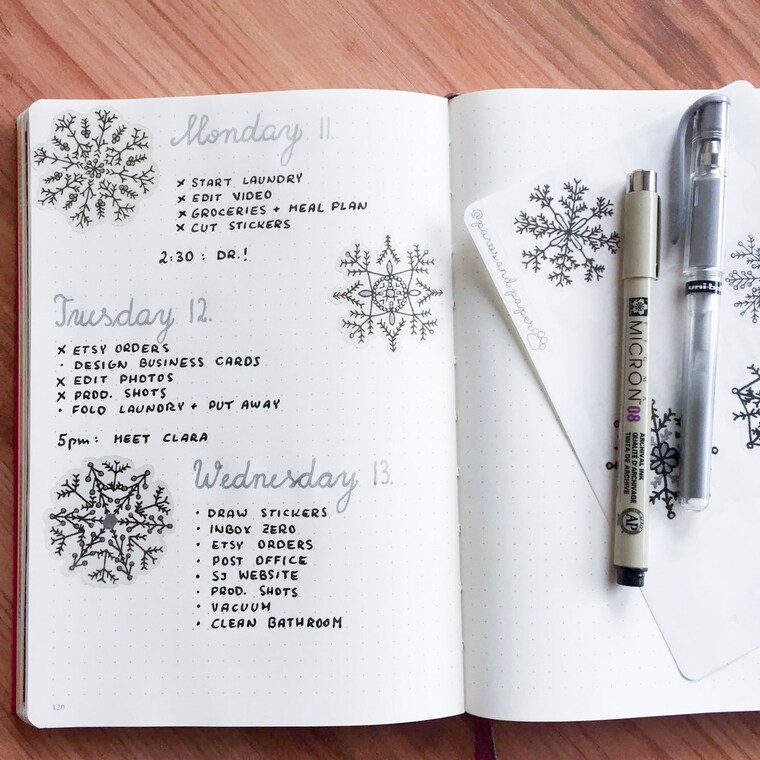 Monday 11.
x START LAUNDRY
x EDIT VIDEO
x GROCERIES + MEAL PLAN
x CUT STICKERS
2:30 : DR.!
Tuesday 12.
x ETSY ORDERS
· DESIGN BUSINESS CARDS
x EDIT PHOTOS
x PROD. SHOTS
· FOLD LAUNDRY + PUT AWAY
5pm: MEET CLARA
Wednesday 13.
· DRAW STICKERS
· INBOX ZERO
· ETSY ORDERS
· POST OFFICE
· SJ WEBSITE
· PROD. SHOTS
· VACUUM
· CLEAN BATHROOM
120
MICRON 08
ARCHIVAL INK
QUALITÉ D'ARCHIVAGE
TINTA DE ARCHIVE
AP